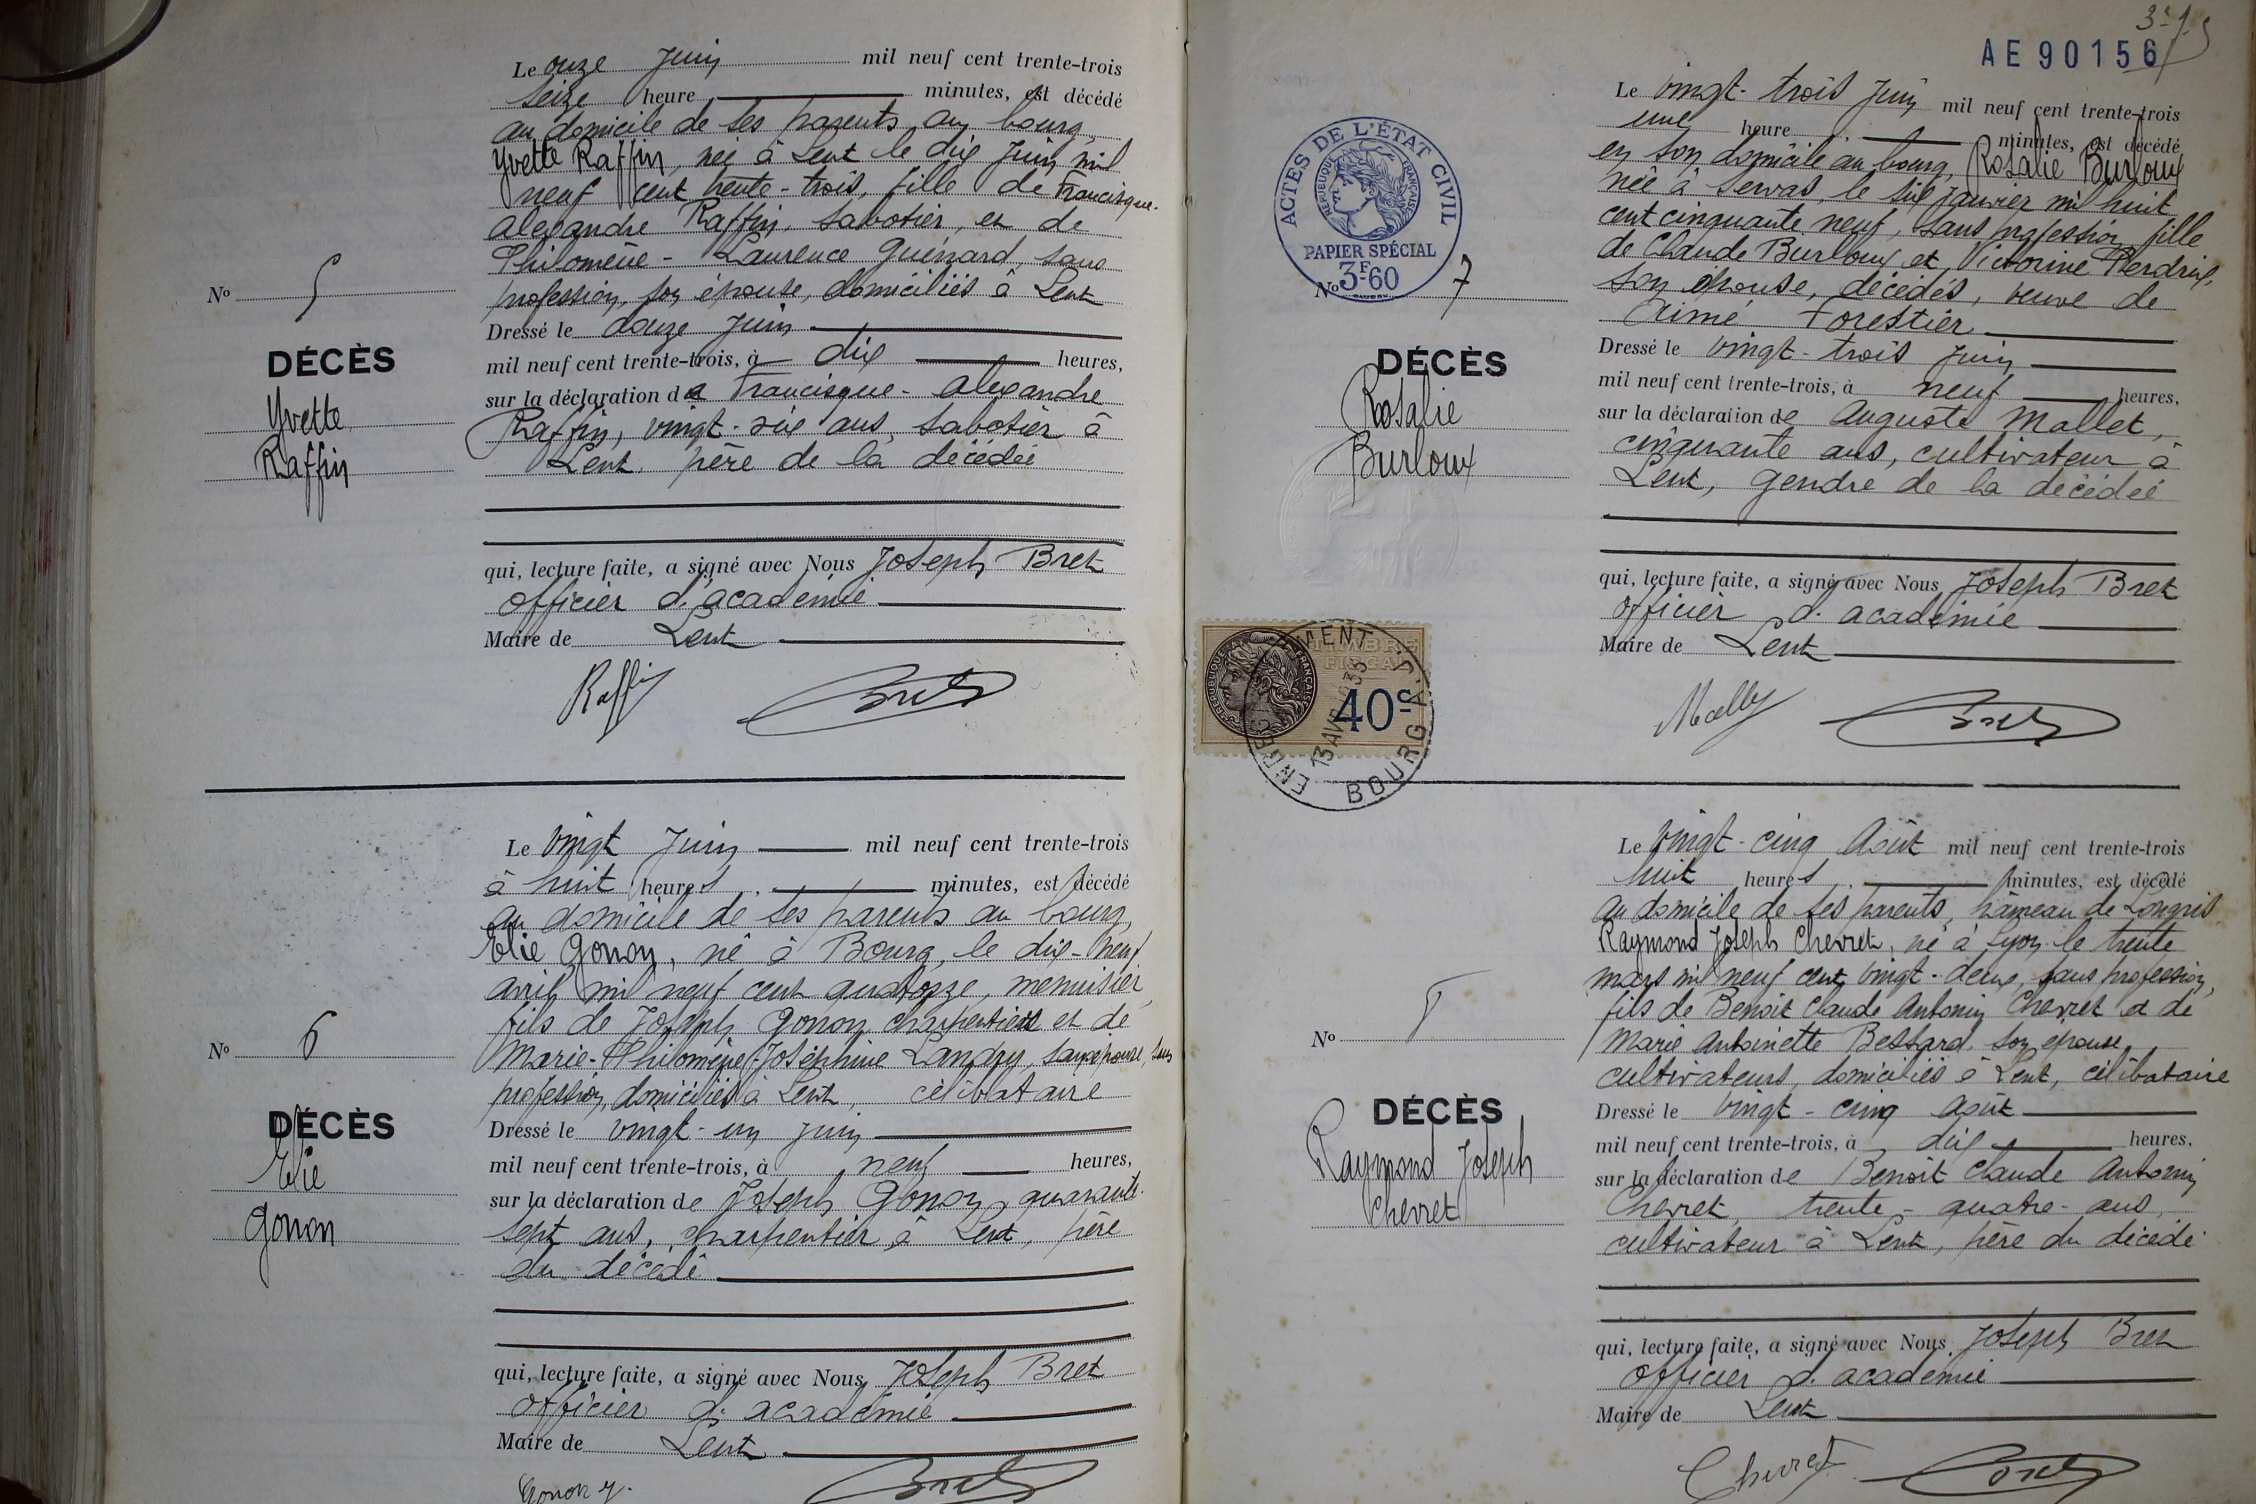 Le onze Juin mil neuf cent trente-trois
seize heure minutes, est décédé
au domicile de ses parents au bourg,
Yvette Raffin, née à Lent le dix Juin mil
neuf cent trente-trois, fille de Francisque-
Alexandre Raffin, sabotier, et de
Philomène-Laurence Guérrard, sans
profession, son épouse, domiciliés à Lent
Dressé le douze Juin
mil neuf cent trente-trois, à dix heures,
sur la déclaration de Francisque-Alexandre
Raffin, vingt-six ans, sabotier à
Lent, père de la décédée
qui, lecture faite, a signé avec Nous Joseph Bret
officier d'académie
Maire de Lent
Raffin Bret
No 5
DÉCÈS
Yvette
Raffin
Le vingt Juin mil neuf cent trente-trois
à huit heures minutes, est décédé
au domicile de ses parents au bourg,
Elie Gonon, né à Bourg, le dix-neuf
avril mil neuf cent quatorze, menuisier,
fils de Joseph Gonon charpentier et de
Marie-Philomène-Joséphine Landry, épouse, sans
profession, domiciliés à Lent, célibataire
Dressé le vingt-un juin
mil neuf cent trente-trois, à neuf heures,
sur la déclaration de Joseph Gonon quarante-
sept ans, charpentier à Lent, père
du décédé
qui, lecture faite, a signé avec Nous Joseph Bret
officier d'académie
Maire de Lent
Gonon J. Bret
No 6
DÉCÈS
Elie
Gonon
AE 90156
Le vingt-trois Juin mil neuf cent trente-trois
une heure minutes, est décédé
en son domicile au bourg, Rosalie Burloux
née à Servas, le six Janvier mil huit
cent cinquante neuf, sans profession, fille
de Claude Burloux et Victorine Perdrix,
son épouse, décédés, veuve de
Aimé Forestier
Dressé le vingt-trois Juin
mil neuf cent trente-trois, à neuf heures,
sur la déclaration de Auguste Mallet,
cinquante ans, cultivateur à
Lent, gendre de la décédée
qui, lecture faite, a signé avec Nous Joseph Bret
officier d'académie
Maire de Lent
Bret
ACTES DE L'ÉTAT CIVIL
RÉPUBLIQUE FRANÇAISE
PAPIER SPÉCIAL
3F-60
No 7
DÉCÈS
Rosalie
Burloux
TIMBRE
FISCAL
RÉPUBLIQUE FRANÇAISE
40c
13 AVR 1933
BOURG
Le vingt-cinq Août mil neuf cent trente-trois
huit heures minutes, est décédé
au domicile de ses parents, hameau de Longris
Raymond Joseph Chevret, né à Lyon le trente
mars mil neuf cent vingt-deux, sans profession,
fils de Benoit Claude Antonin Chevret et de
Marie Antoinette Bessard, son épouse,
cultivateurs, domiciliés à Lent, célibataire
Dressé le vingt-cinq août
mil neuf cent trente-trois, à dix heures,
sur la déclaration de Benoit Claude Antonin
Chevret, trente-quatre ans,
cultivateur à Lent, père du décédé
qui, lecture faite, a signé avec Nous Joseph Bret
officier d'académie
Maire de Lent
Chevret Bret
No
DÉCÈS
Raymond Joseph
Chevret